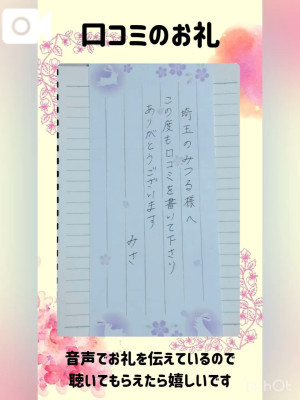 口コミのお礼
埼玉のみつる様へ
この度も口コミを書いて下さり
ありがとうございます
みさ
音声でお礼を伝えているので
聴いてもらえたら嬉しいです